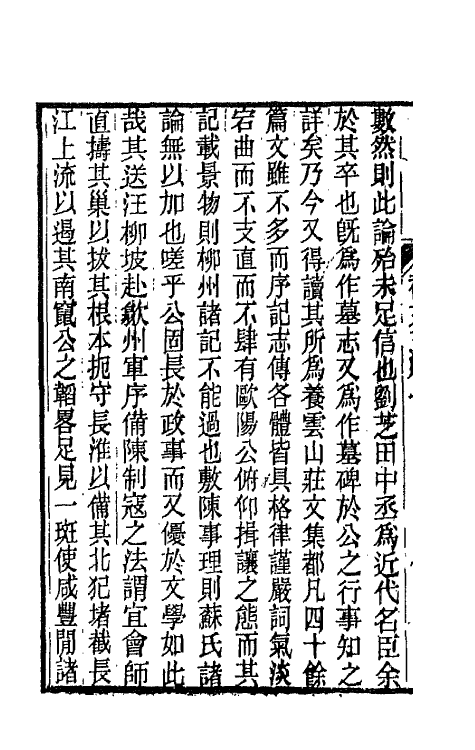 數然則此論殆未足信也劉芝田中丞爲近代名臣余
於其卒也旣爲作墓志又爲作墓碑於公之行事知之
詳矣乃今又得讀其所爲養雲山莊文集都凡四十餘
篇文雖不多而序記志傳各體皆具格律謹嚴詞氣淡
宕曲而不支直而不肆有歐陽公俯仰揖讓之態而其
記載景物則柳州諸記不能過也敷陳事理則蘇氏諸
論無以加也嗟乎公固長於政事而又優於文學如此
哉其送汪柳坡赴歙州軍序備陳制寇之法謂宜會師
直擣其巢以拔其根本扼守長淮以備其北犯堵截長
江上流以遏其南竄公之韜畧足見一斑使咸豐閒諸